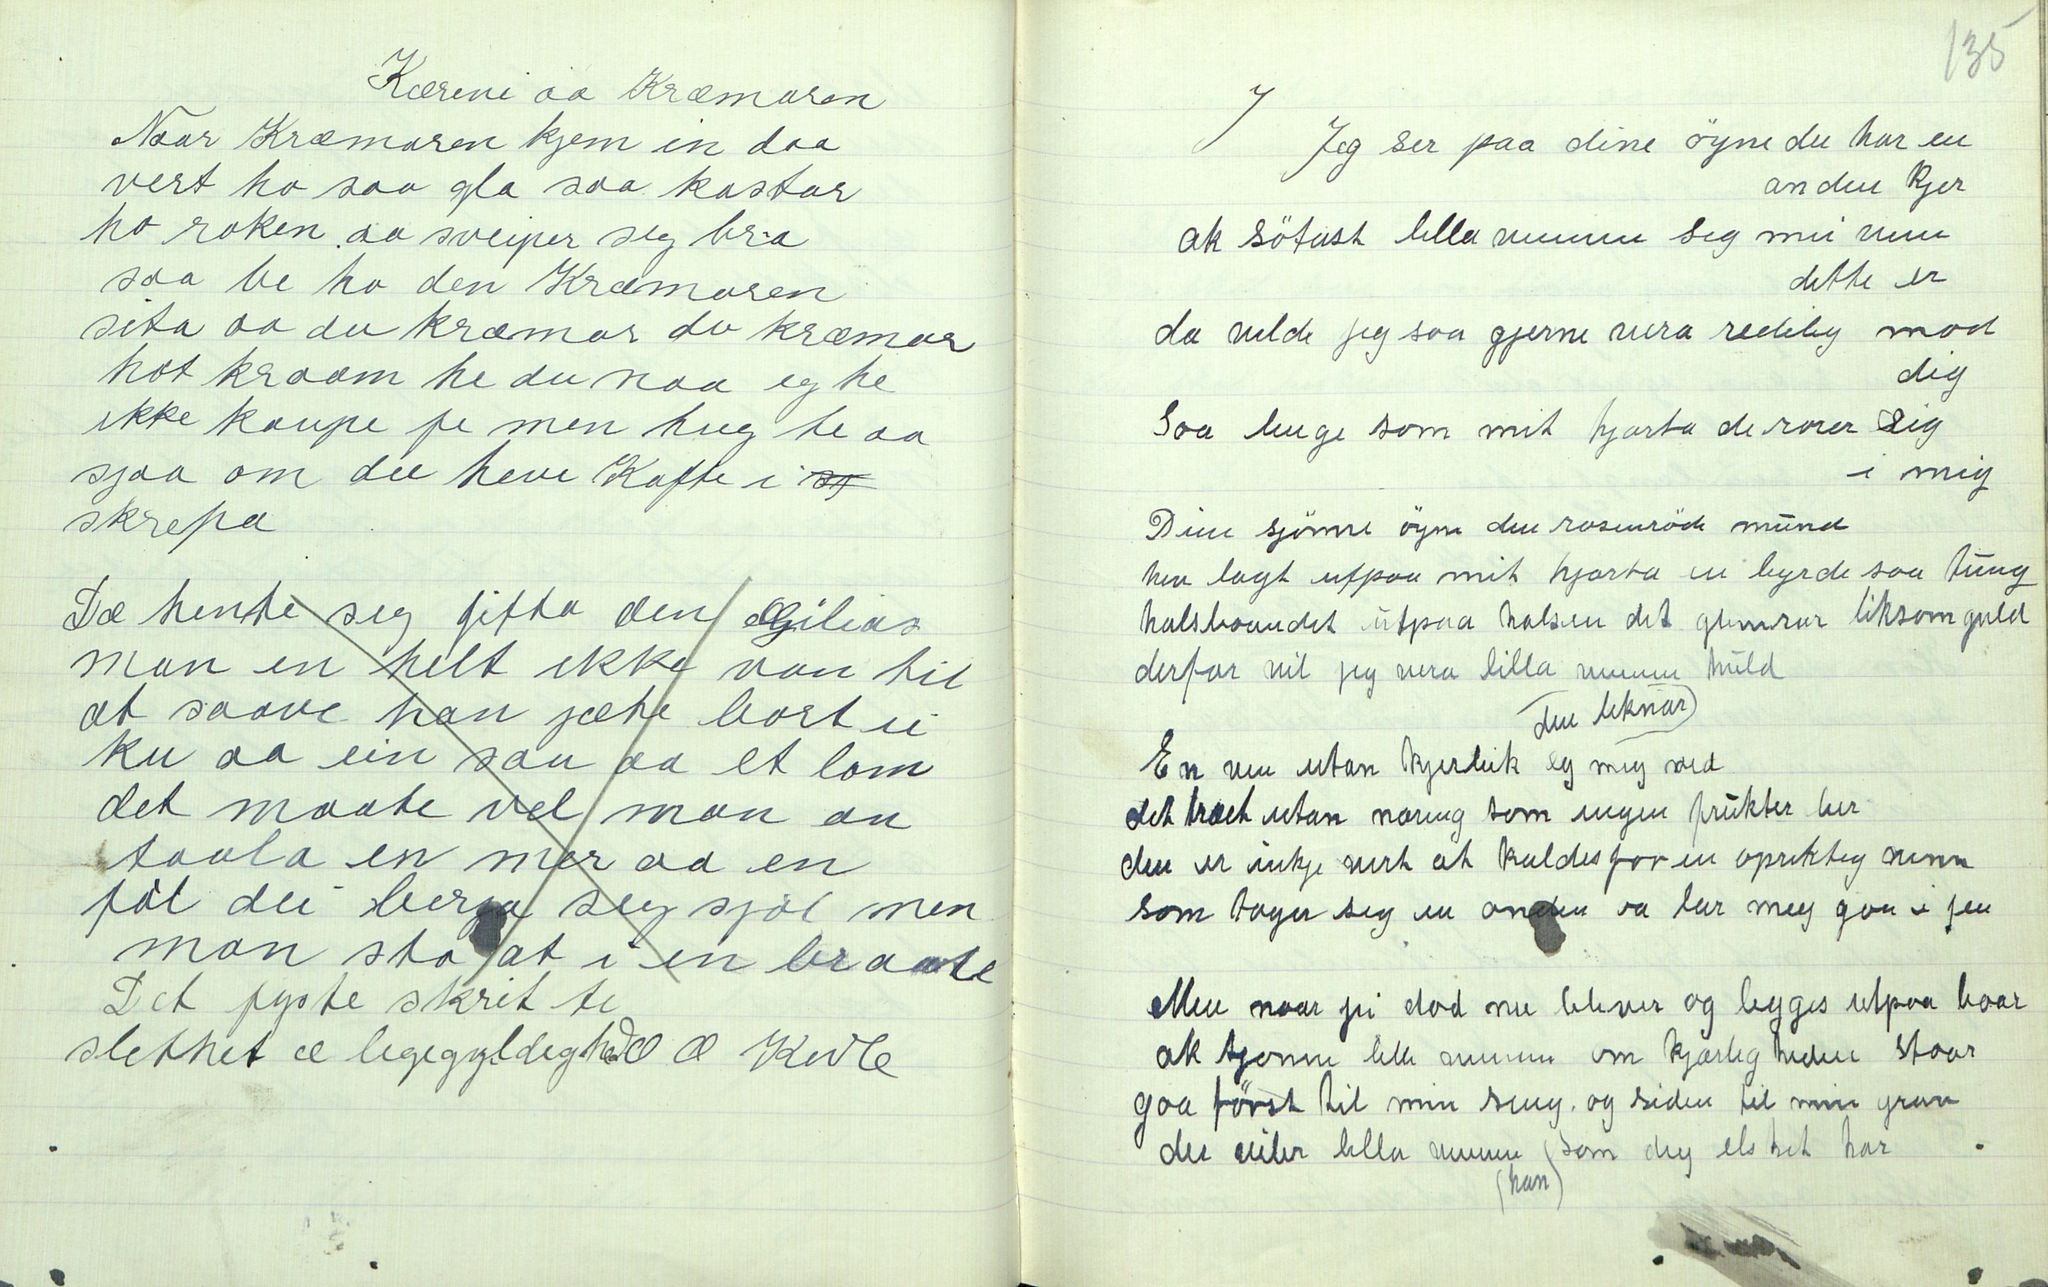 Kærene aa Kræmaren
Naar Kræmaren kjem in daa
vert ho saa gla saa kastar
ho roken aa sveiper seg bra
saa be ho den Kræmaren
sita aa du kræmar du kræmar
hot kraam he du naa eg he
ikke kaupe pe men hug te aa
sjaa om du heve Kaffe i
skrepa
Dæ hente seg gifta den Gilias
man en helt ikke van til
at saave han jæte bort ei
ku aa ein sau aa et lam
det maate vel man an
taala en mer aa en
føl dei berga seg sjøl men
man sto at i en braate
Det fyste skrit te
slethet æ legegyldighed Æ Æ Kvile
135
I
Jeg ser paa dine öyne du har en
anden kjer
ak sötast lilla venn seg mei um
dette er
da velde jeg saa gjerne vera redeleg mod
dig
Saa lenge som mit hjarta de rører Sig
i mig
Dine sjönne öyne den rosenröde mund
hev lagt utpaa mit hjarta en byrde saa tung
halsbaandet utpaa halsen det glimrar liksom guld
derfor vil jeg vera lilla venn huld
den leknar)
En ven utan kjerleik eg meg ved
det træt utan næring som ingen frukter ber
den er inkje vert at kaldes for en oprikteg venn
som tager seg en anden aa lar meg gaa i jen
Men naar jei död nu bliver og legges utpaa baar
ak sjonne lille venn om kjærligheden staar
gaa först til min seng og siden til min grav
der viler lilla venn som deg elsket har
(han)